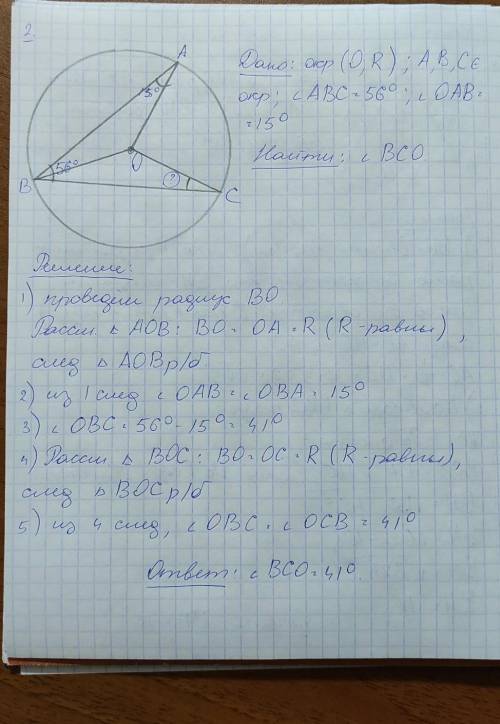 2.
A
15°
56°
O
?
B
C
Дано: окр (O, R) ; A, B, C ∈
окр; ∠ABC = 56° ; ∠OAB =
= 15°
Найти: ∠ BCO
Решение:
1) проведем радиус BO
Рассм. ∆ AOB: BO = OA = R (R - равны) ,
след ∆ AOB р/б
2) из 1 след ∠ OAB = ∠ OBA = 15°
3) ∠ OBC = 56° - 15° = 41°
4) Рассм ∆ BOC : BO = OC = R (R - равны),
след ∆ BOC р/б
5) из 4 след, ∠ OBC = ∠ OCB = 41°
Ответ: ∠ BCO = 41°.